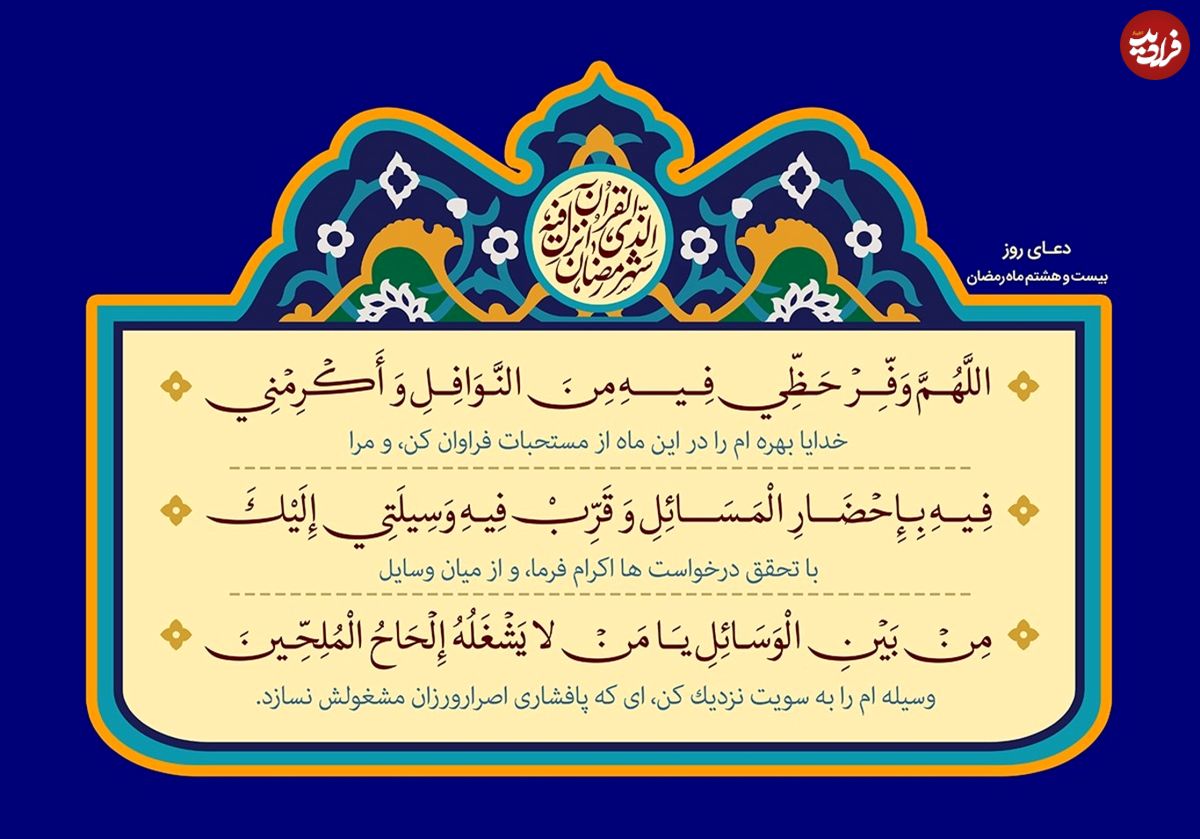 فرادید
شهر رمضان الذی انزل فیه القرآن
دعـای روز
بیست و هشتم ماه رمضان
اللَّهُمَّ وَفِّرْ حَظِّي فِيهِ مِنَ النَّوَافِلِ وَ أَكْرِمْنِي
خدایا بهره ام را در این ماه از مستحبات فراوان کن، و مرا
فِيهِ بِإِحْضَارِ الْمَسَائِلِ وَ قَرِّبْ فِيهِ وَسِيلَتِي إِلَيْكَ
با تحقق درخواست ها اکرام فرما، و از میان وسایل
مِنْ بَيْنِ الْوَسَائِلِ يَا مَنْ لا يَشْغَلُهُ إِلْحَاحُ الْمُلِحِّينَ
وسیله ام را به سویت نزدیك کن، ای که پافشاری اصرارورزان مشغولش نسازد.